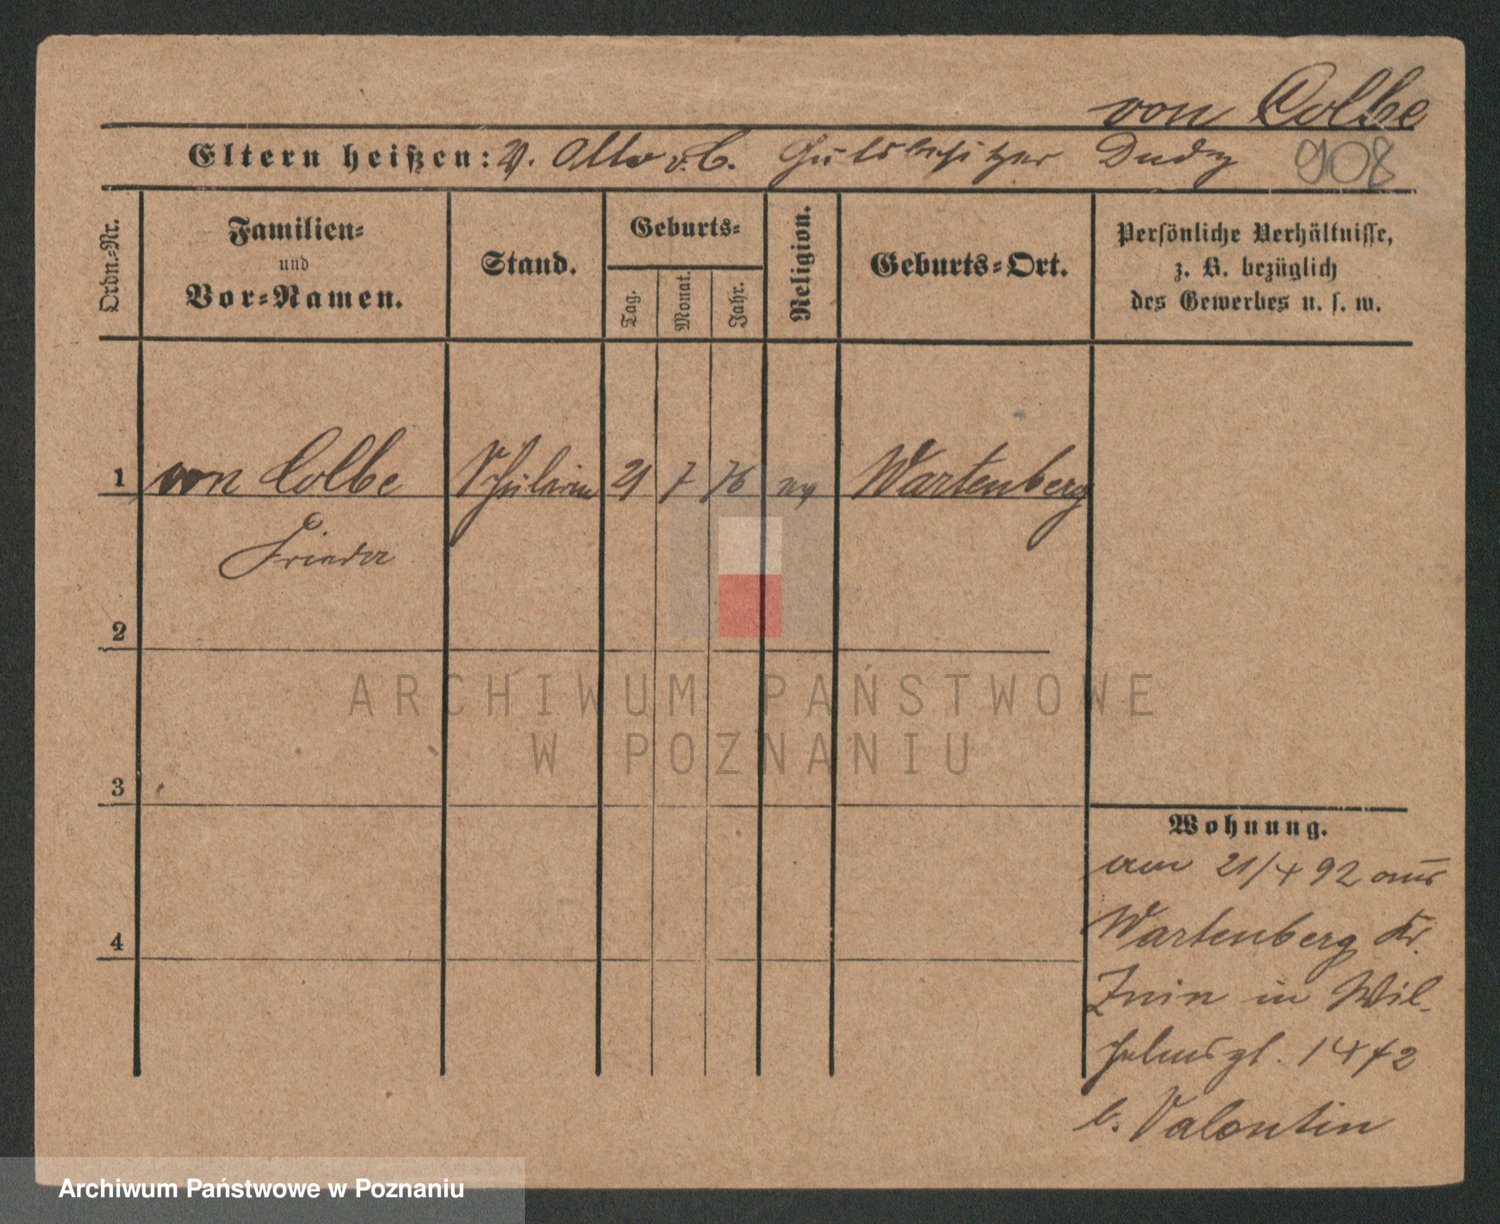 von Colbe
Eltern heißen: V. Otto v. C. Gutsbesitzer Dudy 908
Ordn.-Nr.
Familien-
und
Vor-Namen.
Stand.
Geburts-
Tag.
Monat.
Jahr.
Religion.
Geburts-Ort.
Persönliche Verhältnisse,
z. B. bezüglich
des Gewerbes u. s. w.
1 von Colbe Schülerin 21 7 76 Wartenberg
Frieda
2
3
4
ARCHIWUM PAŃSTWOWE
W POZNANIU
Wohnung.
am 21/4 92 aus
Wartenberg Kr.
Znin in Wil-
helmspl. 14
b. Valentin
Archiwum Państwowe w Poznaniu